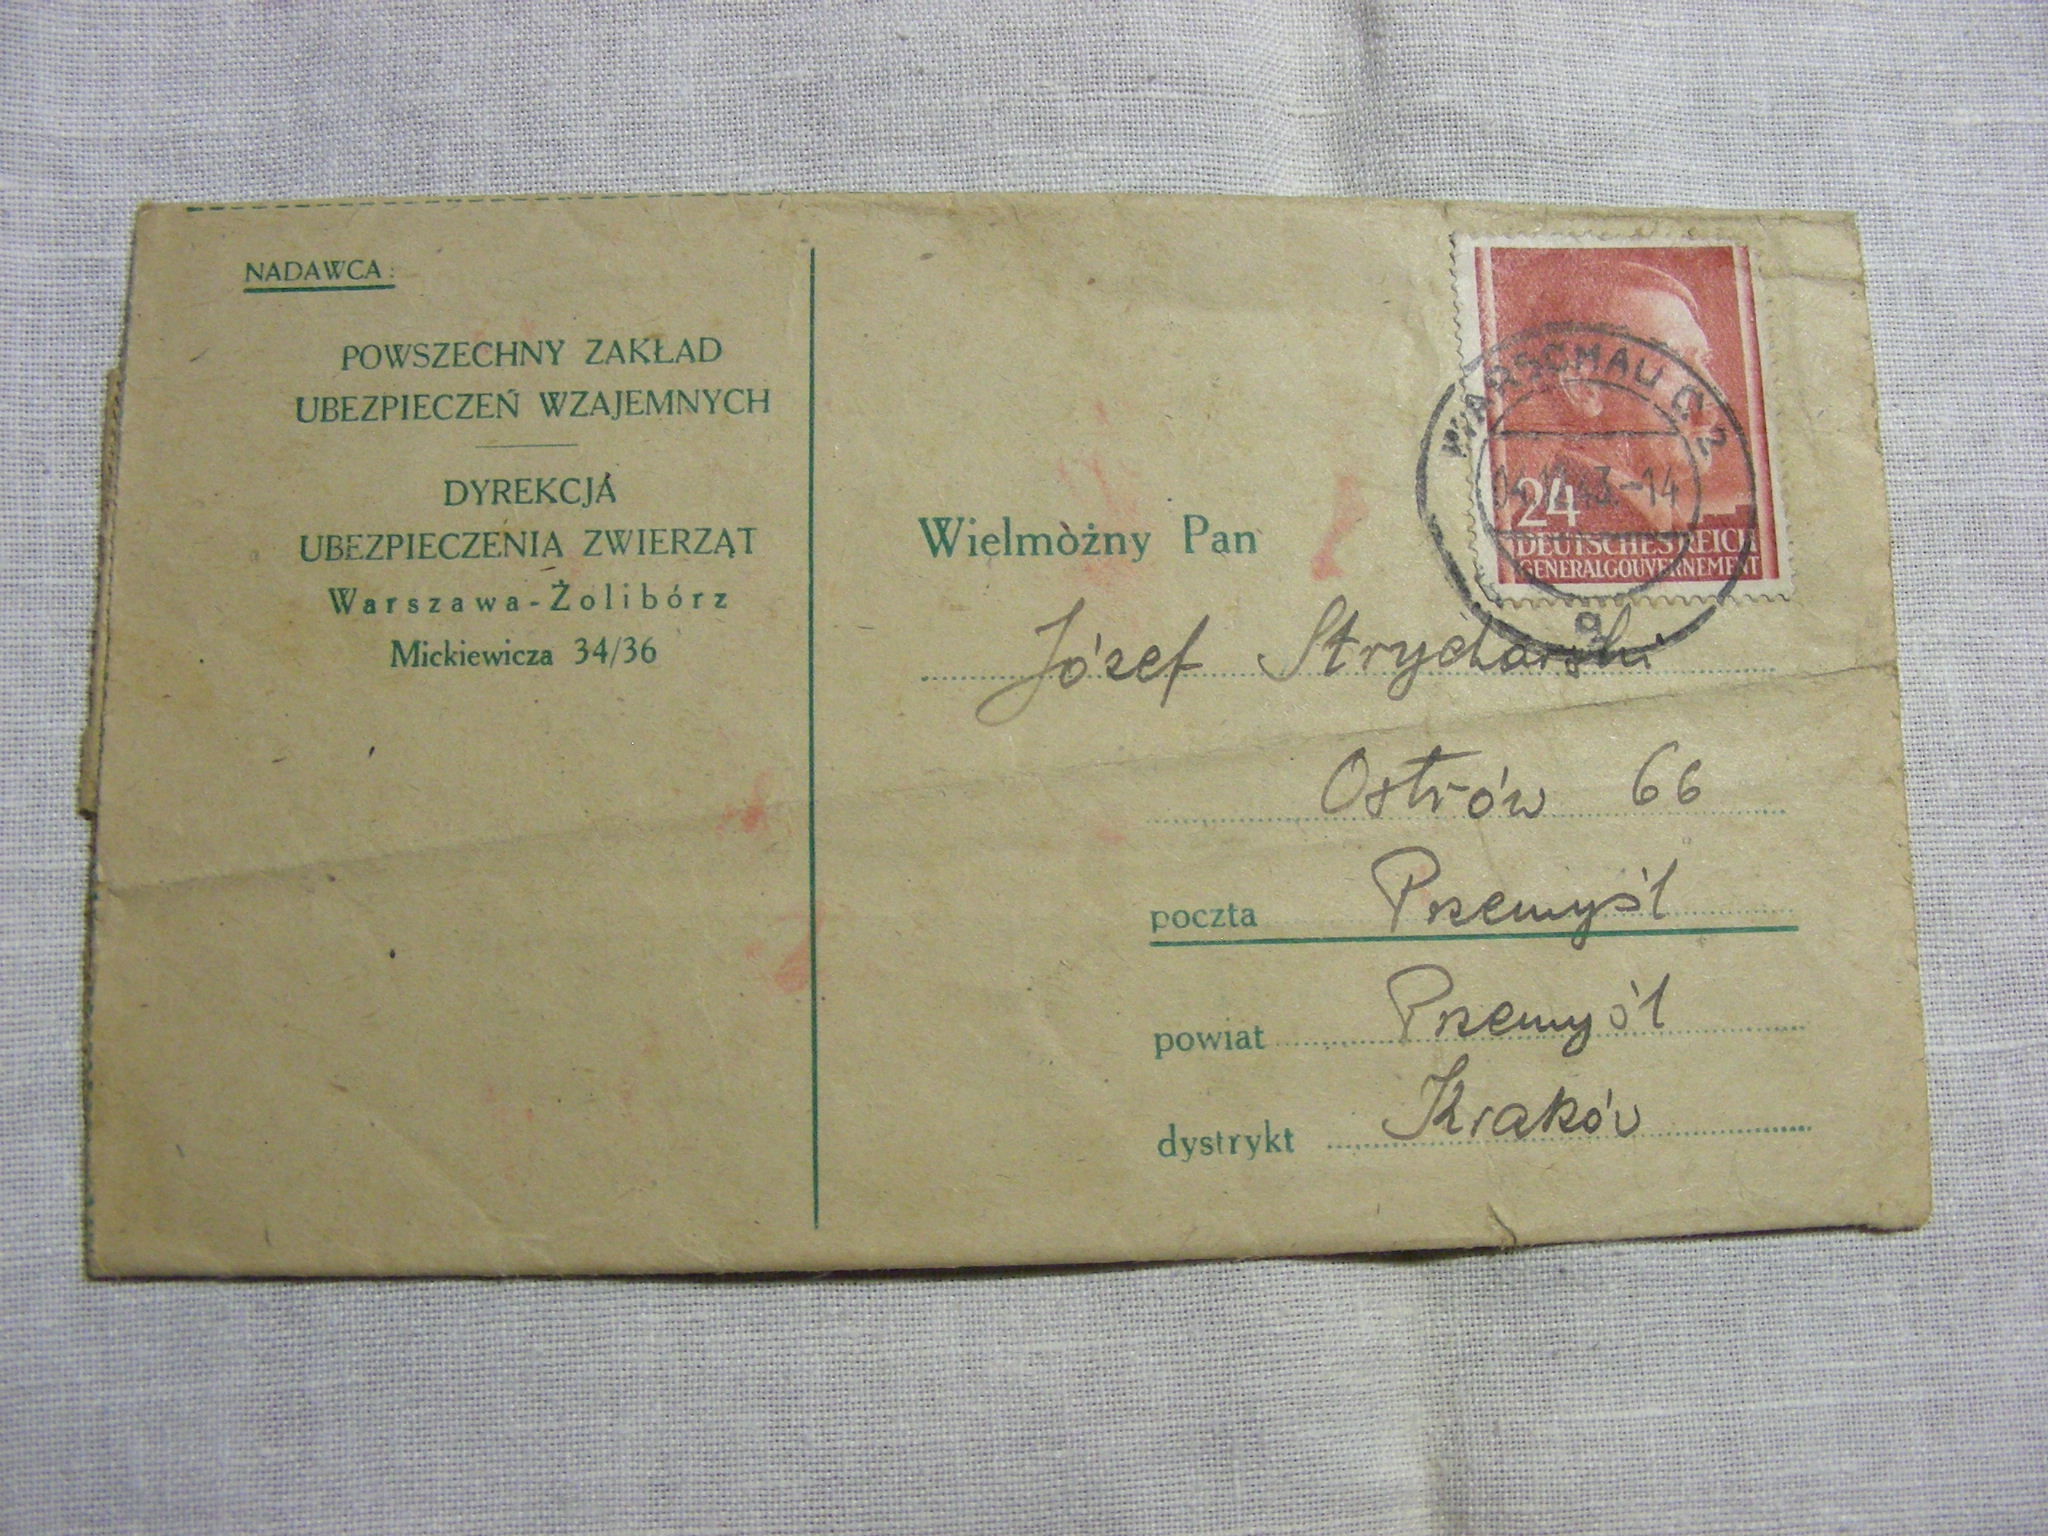 NADAWCA:
POWSZECHNY ZAKŁAD
UBEZPIECZEŃ WZAJEMNYCH
DYREKCJA
UBEZPIECZENIA ZWIERZĄT
Warszawa-Żolibórz
Mickiewicza 34/36
WARSCHAU C 2
43.-14
a
24
DEUTSCHES REICH
GENERALGOUVERNEMENT
Wielmożny Pan
Józef Strycharski
Ostrów 66
poczta Przemyśl
powiat Przemyśl
dystrykt Kraków